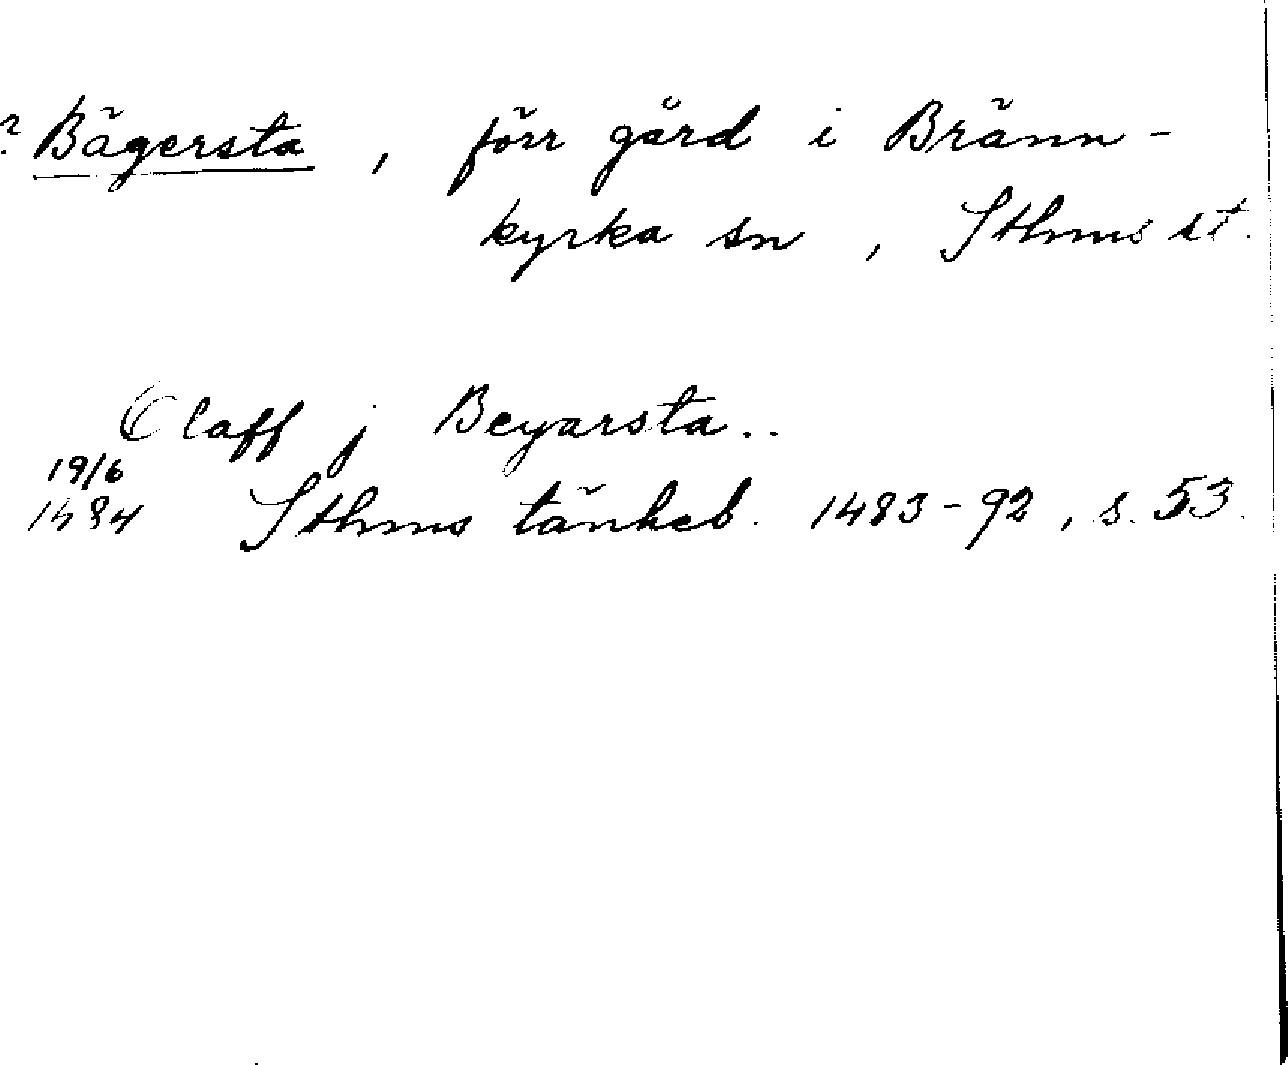 ? Bägersta, förr gård i Bränn-
kyrka sn, Sthms st.
Olaff j Beyarsta..
19/6
1484 Sthms tänkeb. 1483-92, s. 53.